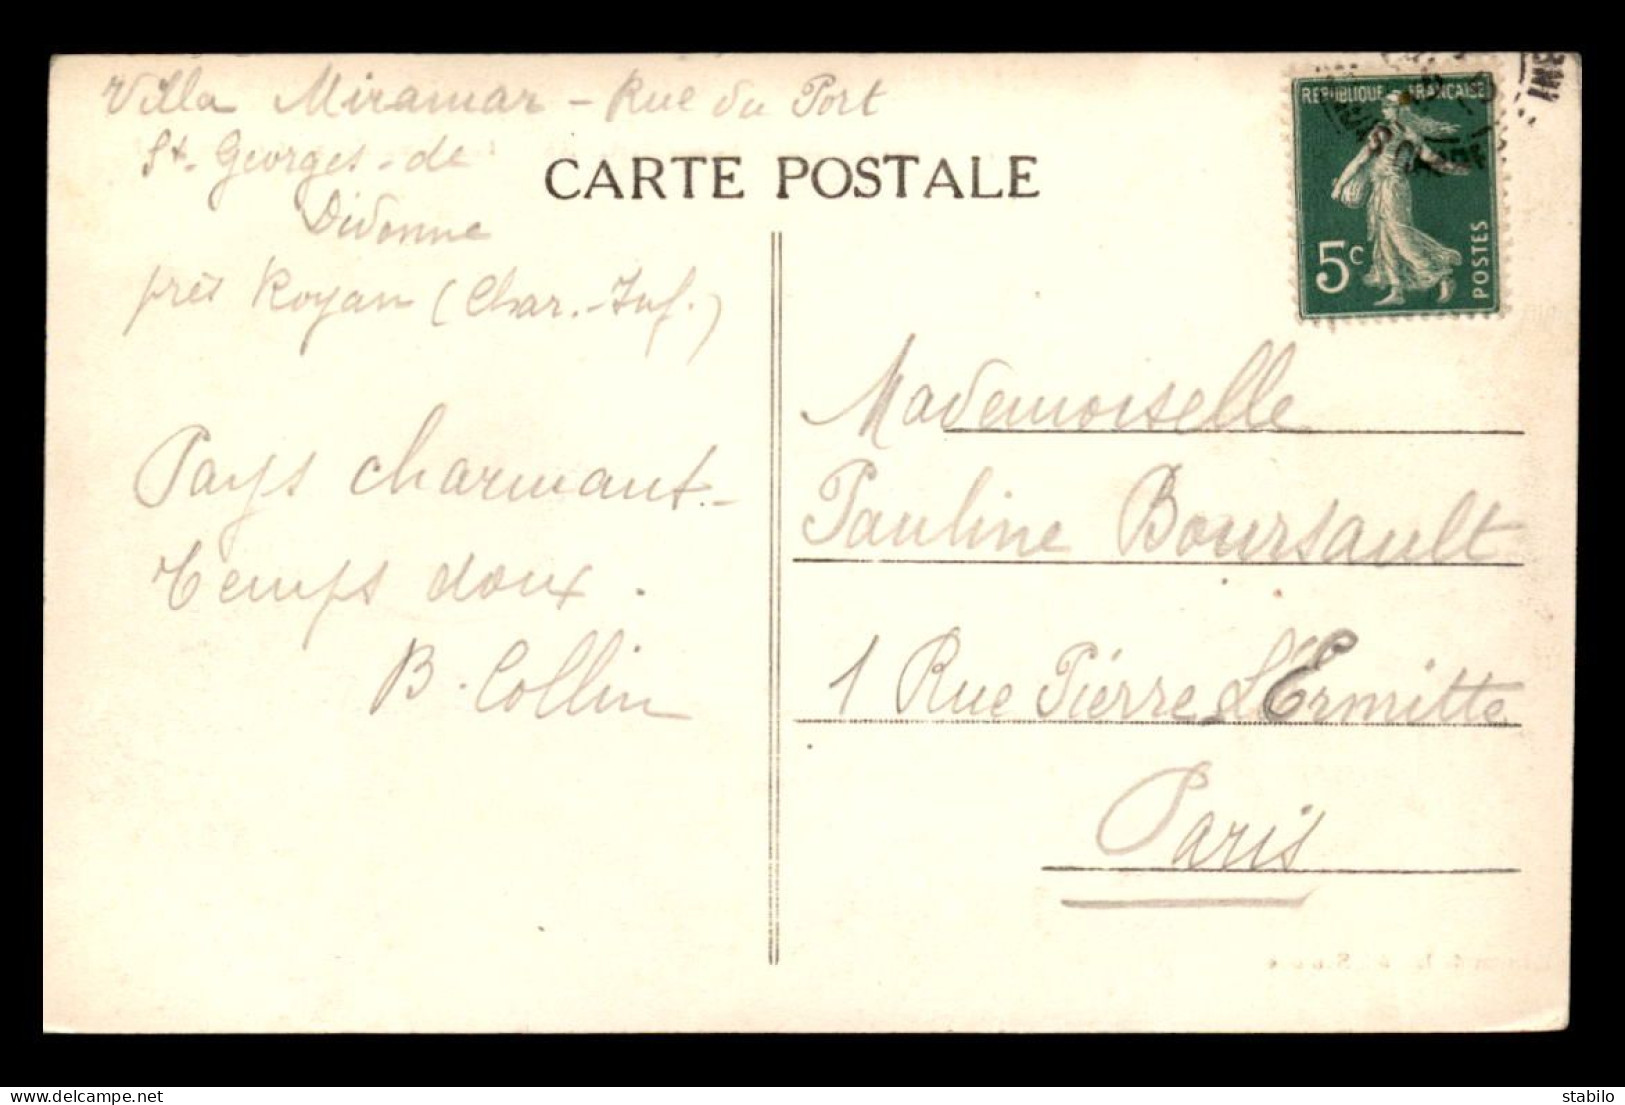 Villa Miramar - Rue du Port
St. Georges-de
Didonne
près Royan (Char.-Inf.)
CARTE POSTALE
REPUBLIQUE FRANCAISE
5c
POSTES
Pays charmant.-
Temps doux.
B. Collin
Mademoiselle
Pauline Boursault
1 Rue Pierre L'Ermitte
Paris
delcampe.net
stabilo